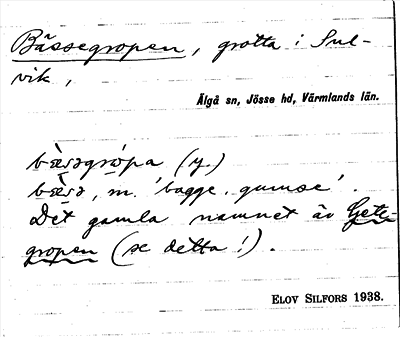 Bässegropen, grotta i Sul-
vik,
Älgå sn, Jösse hd, Värmlands län.
bæ̀sǝgrópa (y.)
bæ̀sǝ, m. 'bagge, gumse'.
Det gamla namnet är Gete-
gropen (se detta!).
ELOV SILFORS 1938.